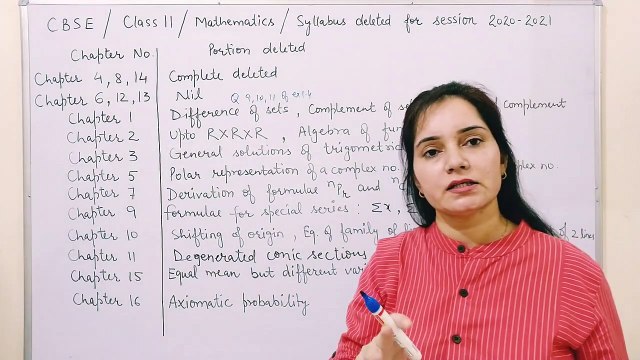 CBSE / Class 11 / Mathematics / Syllabus deleted for session 2020-2021
Chapter No. Portion deleted
Chapter 4, 8, 14 Complete deleted
Chapter 6, 12, 13 Nil Q 9, 10, 11 of ex 1.6
Chapter 1 Difference of sets, Complement of complement
Chapter 2 Upto RXRXR, Algebra of
Chapter 3 General solutions of trigometric
Chapter 5 Polar representation of a complex no. no.
Chapter 7 Derivation of formulae nPr and
Chapter 9 formulae for special series: Σx,
Chapter 10 Shifting of origin, Eq. of family of of 2 lines
Chapter 11 Degenerated conic sections
Chapter 15 Equal mean but different
Chapter 16 Axiomatic probability